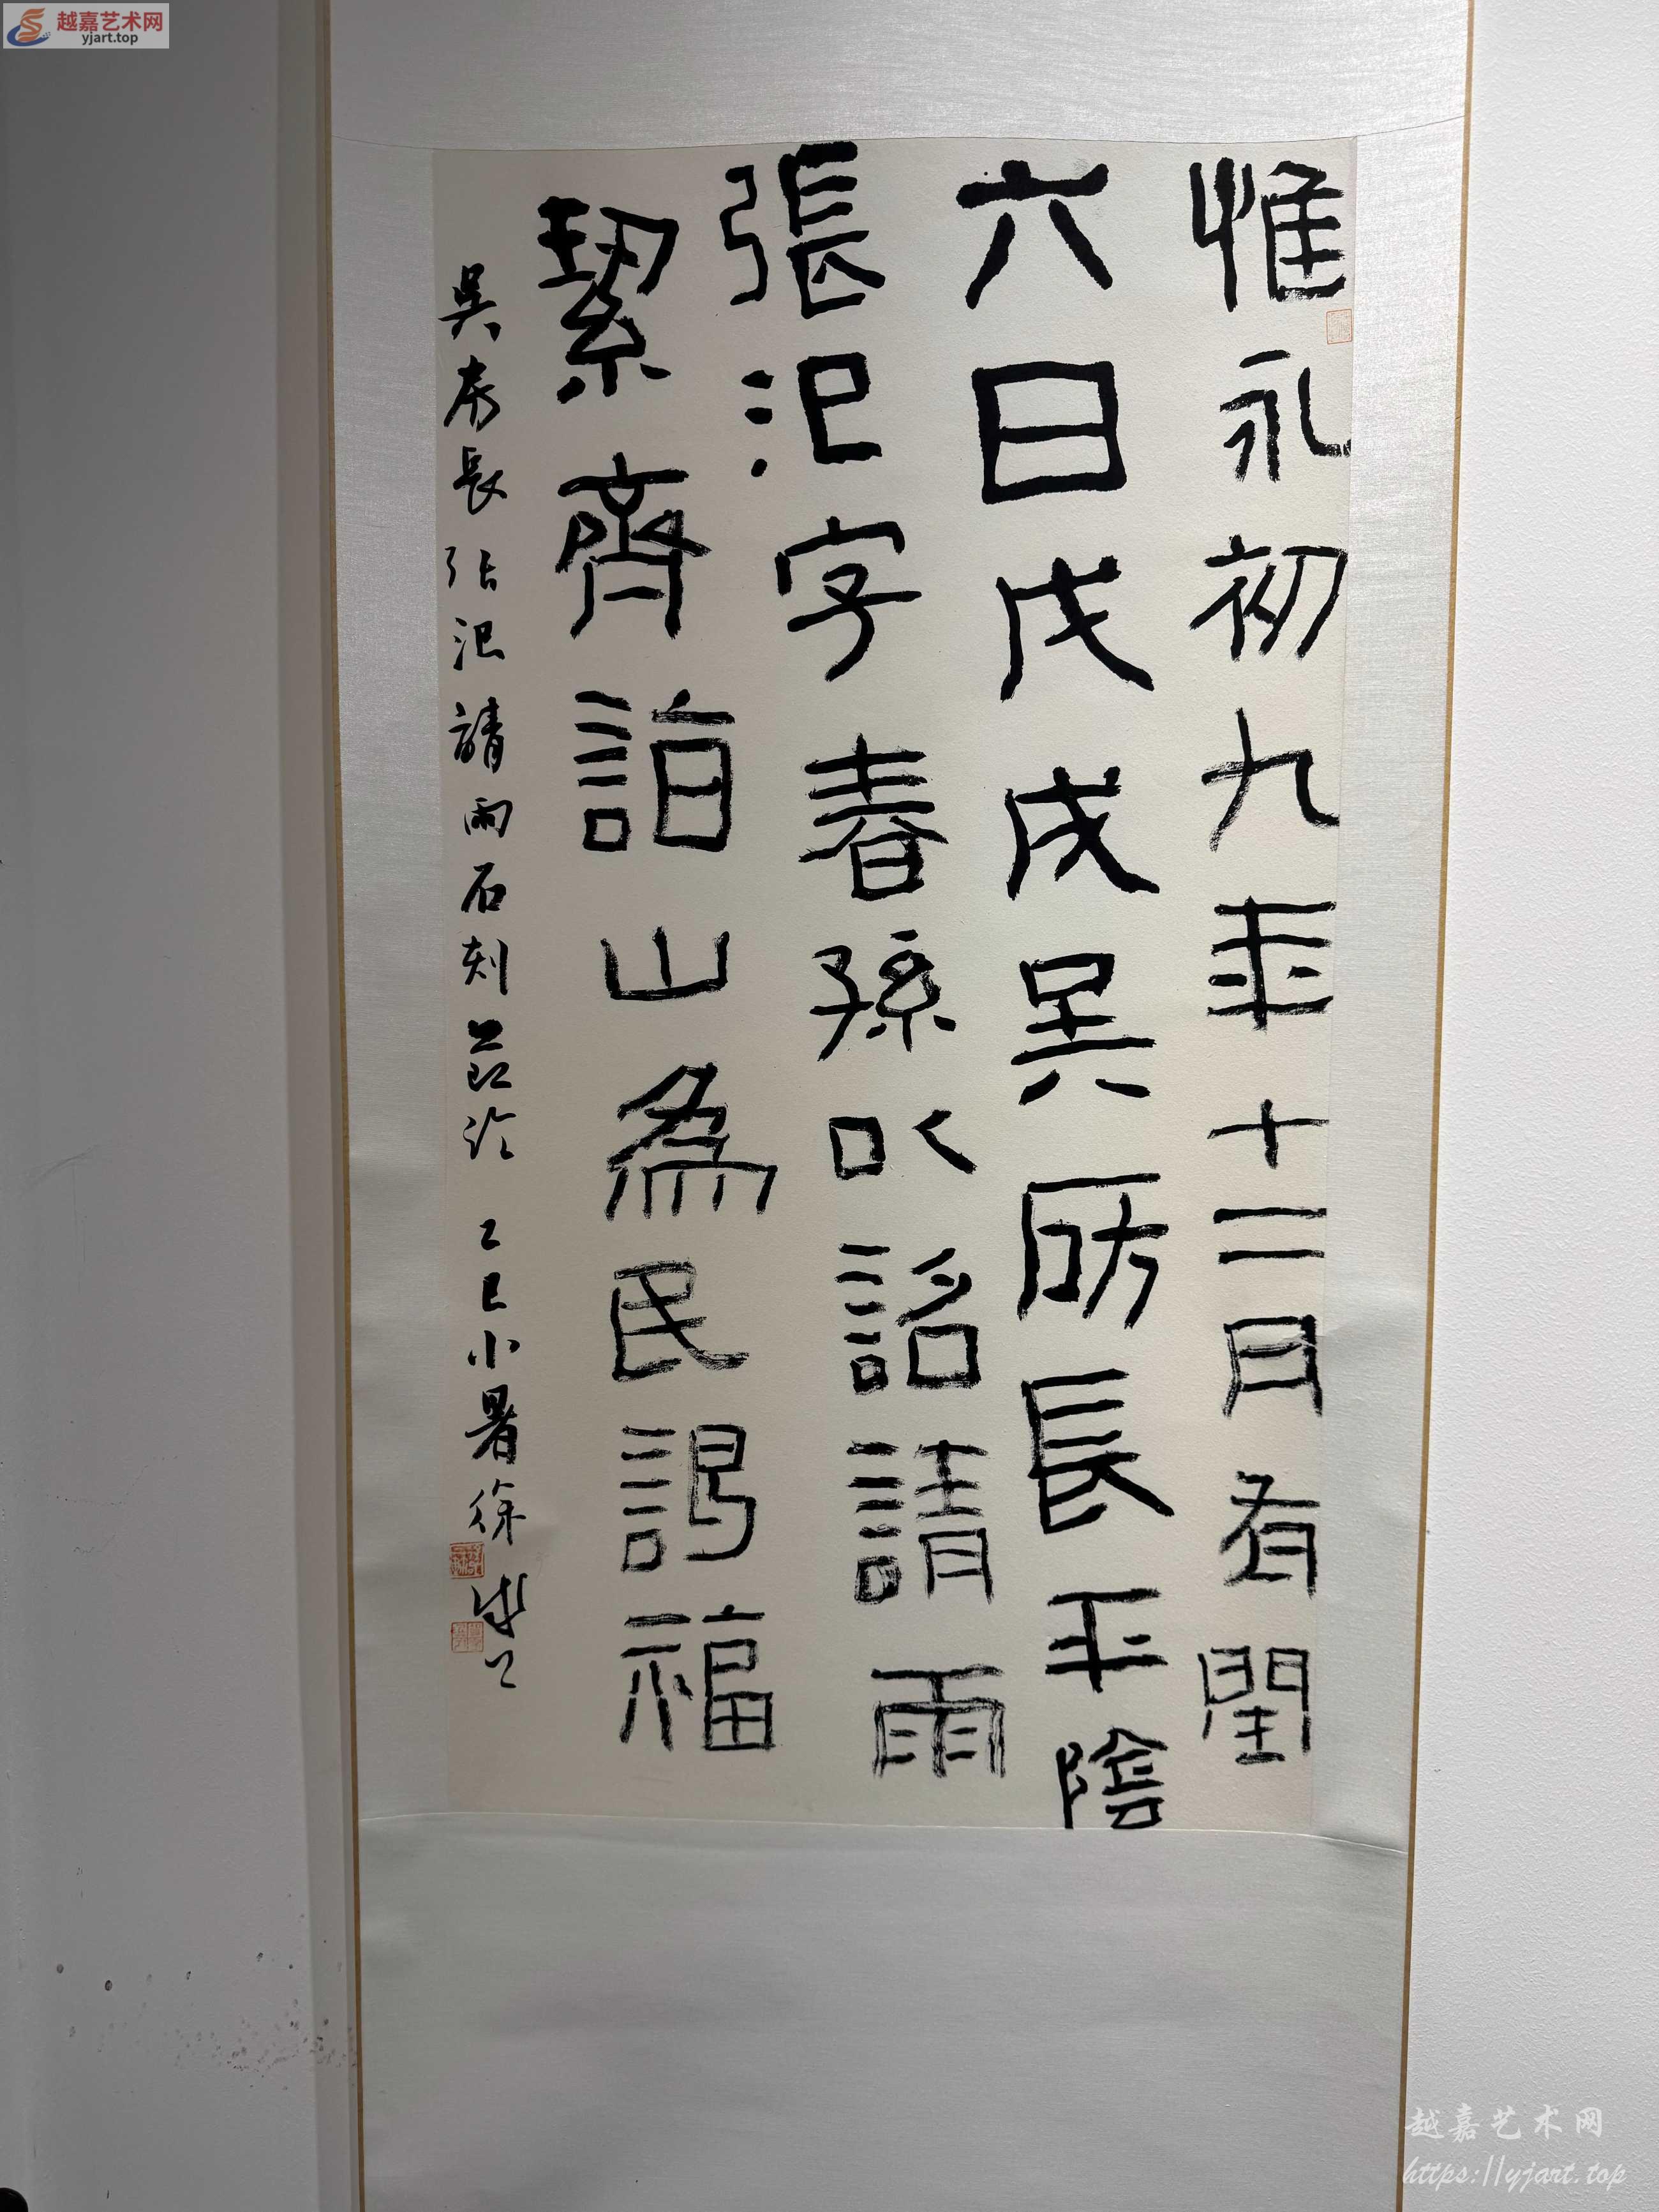 越嘉艺术网
yjart.top
惟永初九年十二月有閏
六日戊戌吳房長平陰
張汜字春孫以詔請雨
絜齊詣山為民謁福
吳房長張汜請雨石刻 乙巳小暑徐
越嘉艺术网
https://yjart.top